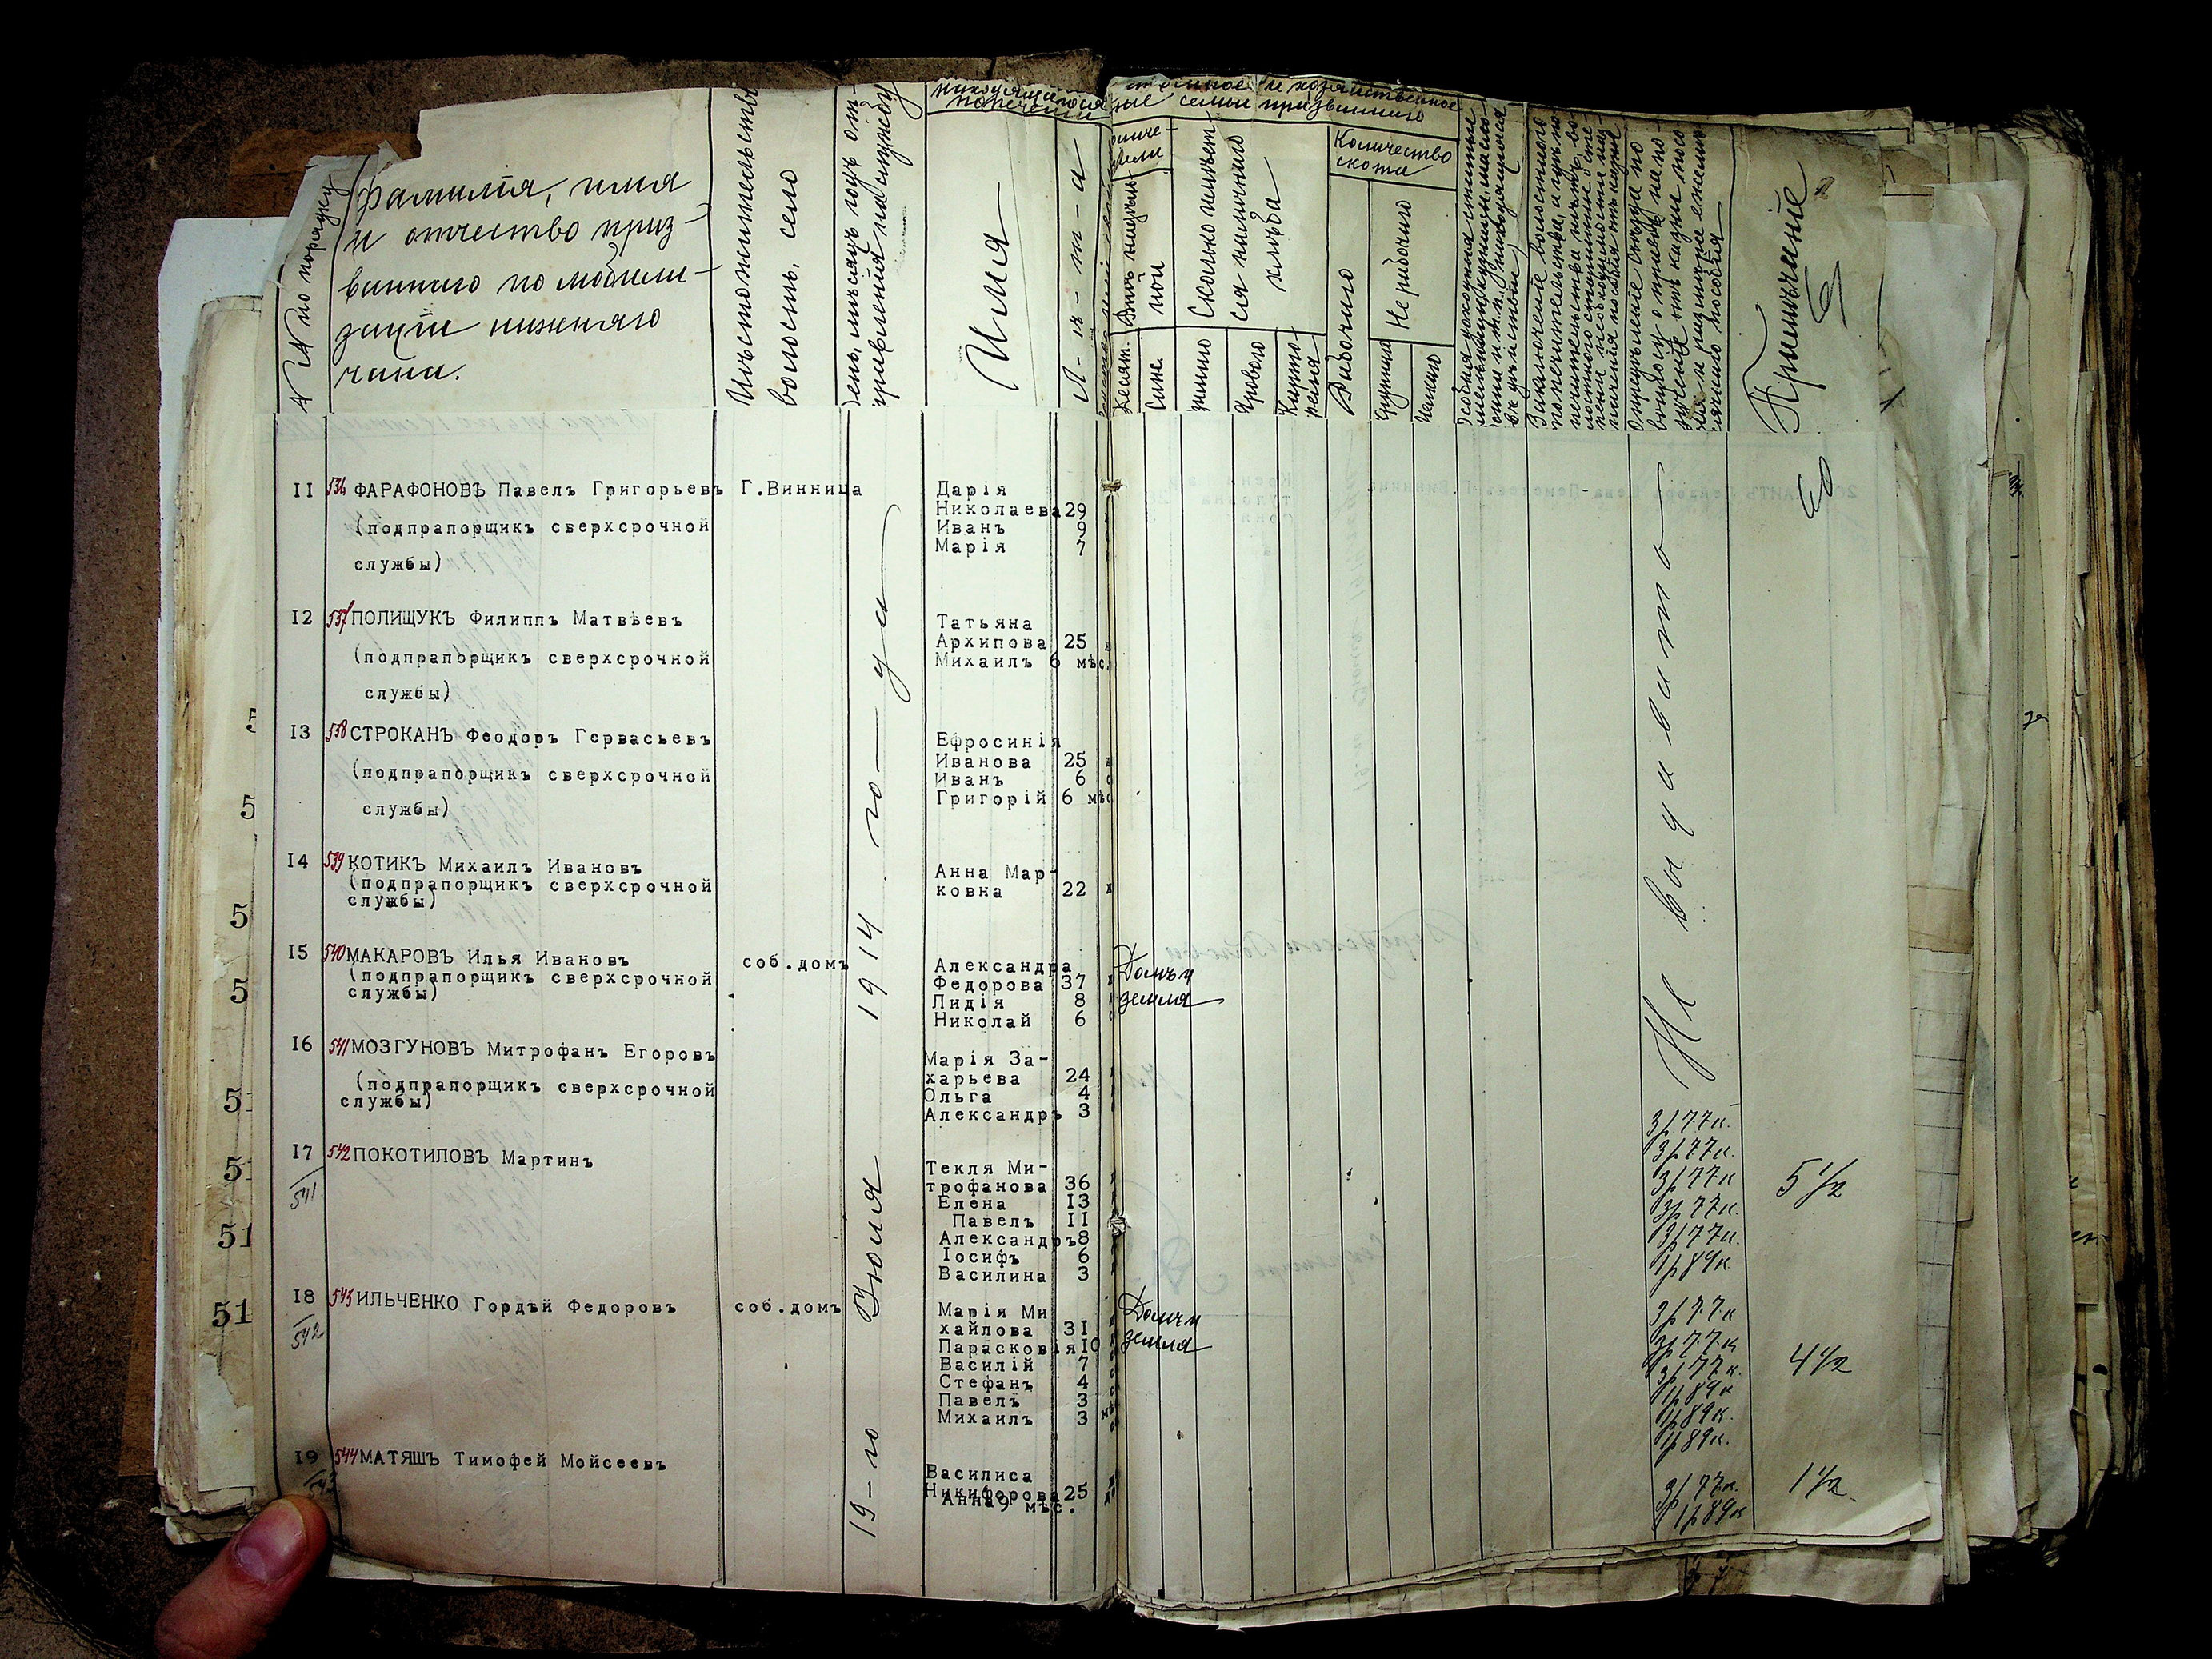 №№ по порядку
Фамилія, имя
и отчество приз-
ваннаго по мобили-
заціи нижняго
чина.
Мѣстожительство
волость, село
День, мѣсяцъ, годъ от-
правленія на службу
Имя
Л-ѣ-т-а
семьи призваннаго
Сколько имѣет-
ся наличнаго
хлѣба
Озимаго
Ярового
Карто-
феля
Количество
скота
Рабочаго
Не рабочаго
Крупнаго
Мелкаго
Десят.
Саж.
Примѣчаніе
19-го Іюля 1914 го-да
Не выдавать
11 536 ФАРАФОНОВЪ Павелъ Григорьевъ Г.Винница
(подпрапорщикъ сверхсрочной
службы)
Дарія
Николаева 29
Иванъ 9
Марія 7
12 537 ПОЛИЩУКЪ Филиппъ Матвѣевъ
(подпрапорщикъ сверхсрочной
службы)
Татьяна
Архипова 25
Михаилъ 6 мѣс.
13 538 СТРОКАНЪ Феодоръ Гервасьевъ
(подпрапорщикъ сверхсрочной
службы)
Ефросинія
Иванова 25
Иванъ 6
Григорій 6 мѣс
14 539 КОТИКЪ Михаилъ Ивановъ
(подпрапорщикъ сверхсрочной
службы)
Анна Мар-
ковна 22
15 540 МАКАРОВЪ Илья Ивановъ соб.домъ
(подпрапорщикъ сверхсрочной
службы)
Александра
Федорова 37
Лидія 8
Николай 6
Домъ и
земля
16 541 МОЗГУНОВЪ Митрофанъ Егоровъ
(подпрапорщикъ сверхсрочной
службы)
Марія За-
харьева 24
Ольга 4
Александръ 3
17 542 ПОКОТИЛОВЪ Мартинъ
541
Текля Ми-
трофанова 36
Елена 13
Павелъ 11
Александръ 8
Іосифъ 6
Василина 3
3р 77к.
3р 77к.
3р 77к
3р 77к.
3р 77к.
1р 89к
5 1/2
18 543 ИЛЬЧЕНКО Гордѣй Федоровъ соб.домъ
542
Марія Ми
хайлова 31
Парасковія 10
Василій 7
Стефанъ 4
Павелъ 3
Михаилъ 3
Домъ и
земля
3р 77к
3р 77к
3р 77к.
1р 89к
1р 89к.
1р 89к.
4 1/2
19 544 МАТЯШЪ Тимофей Мойсеевъ
543
Василиса
Никифорова 25
Анна 9 мѣс.
3р 77к.
1р 89к
1 1/2